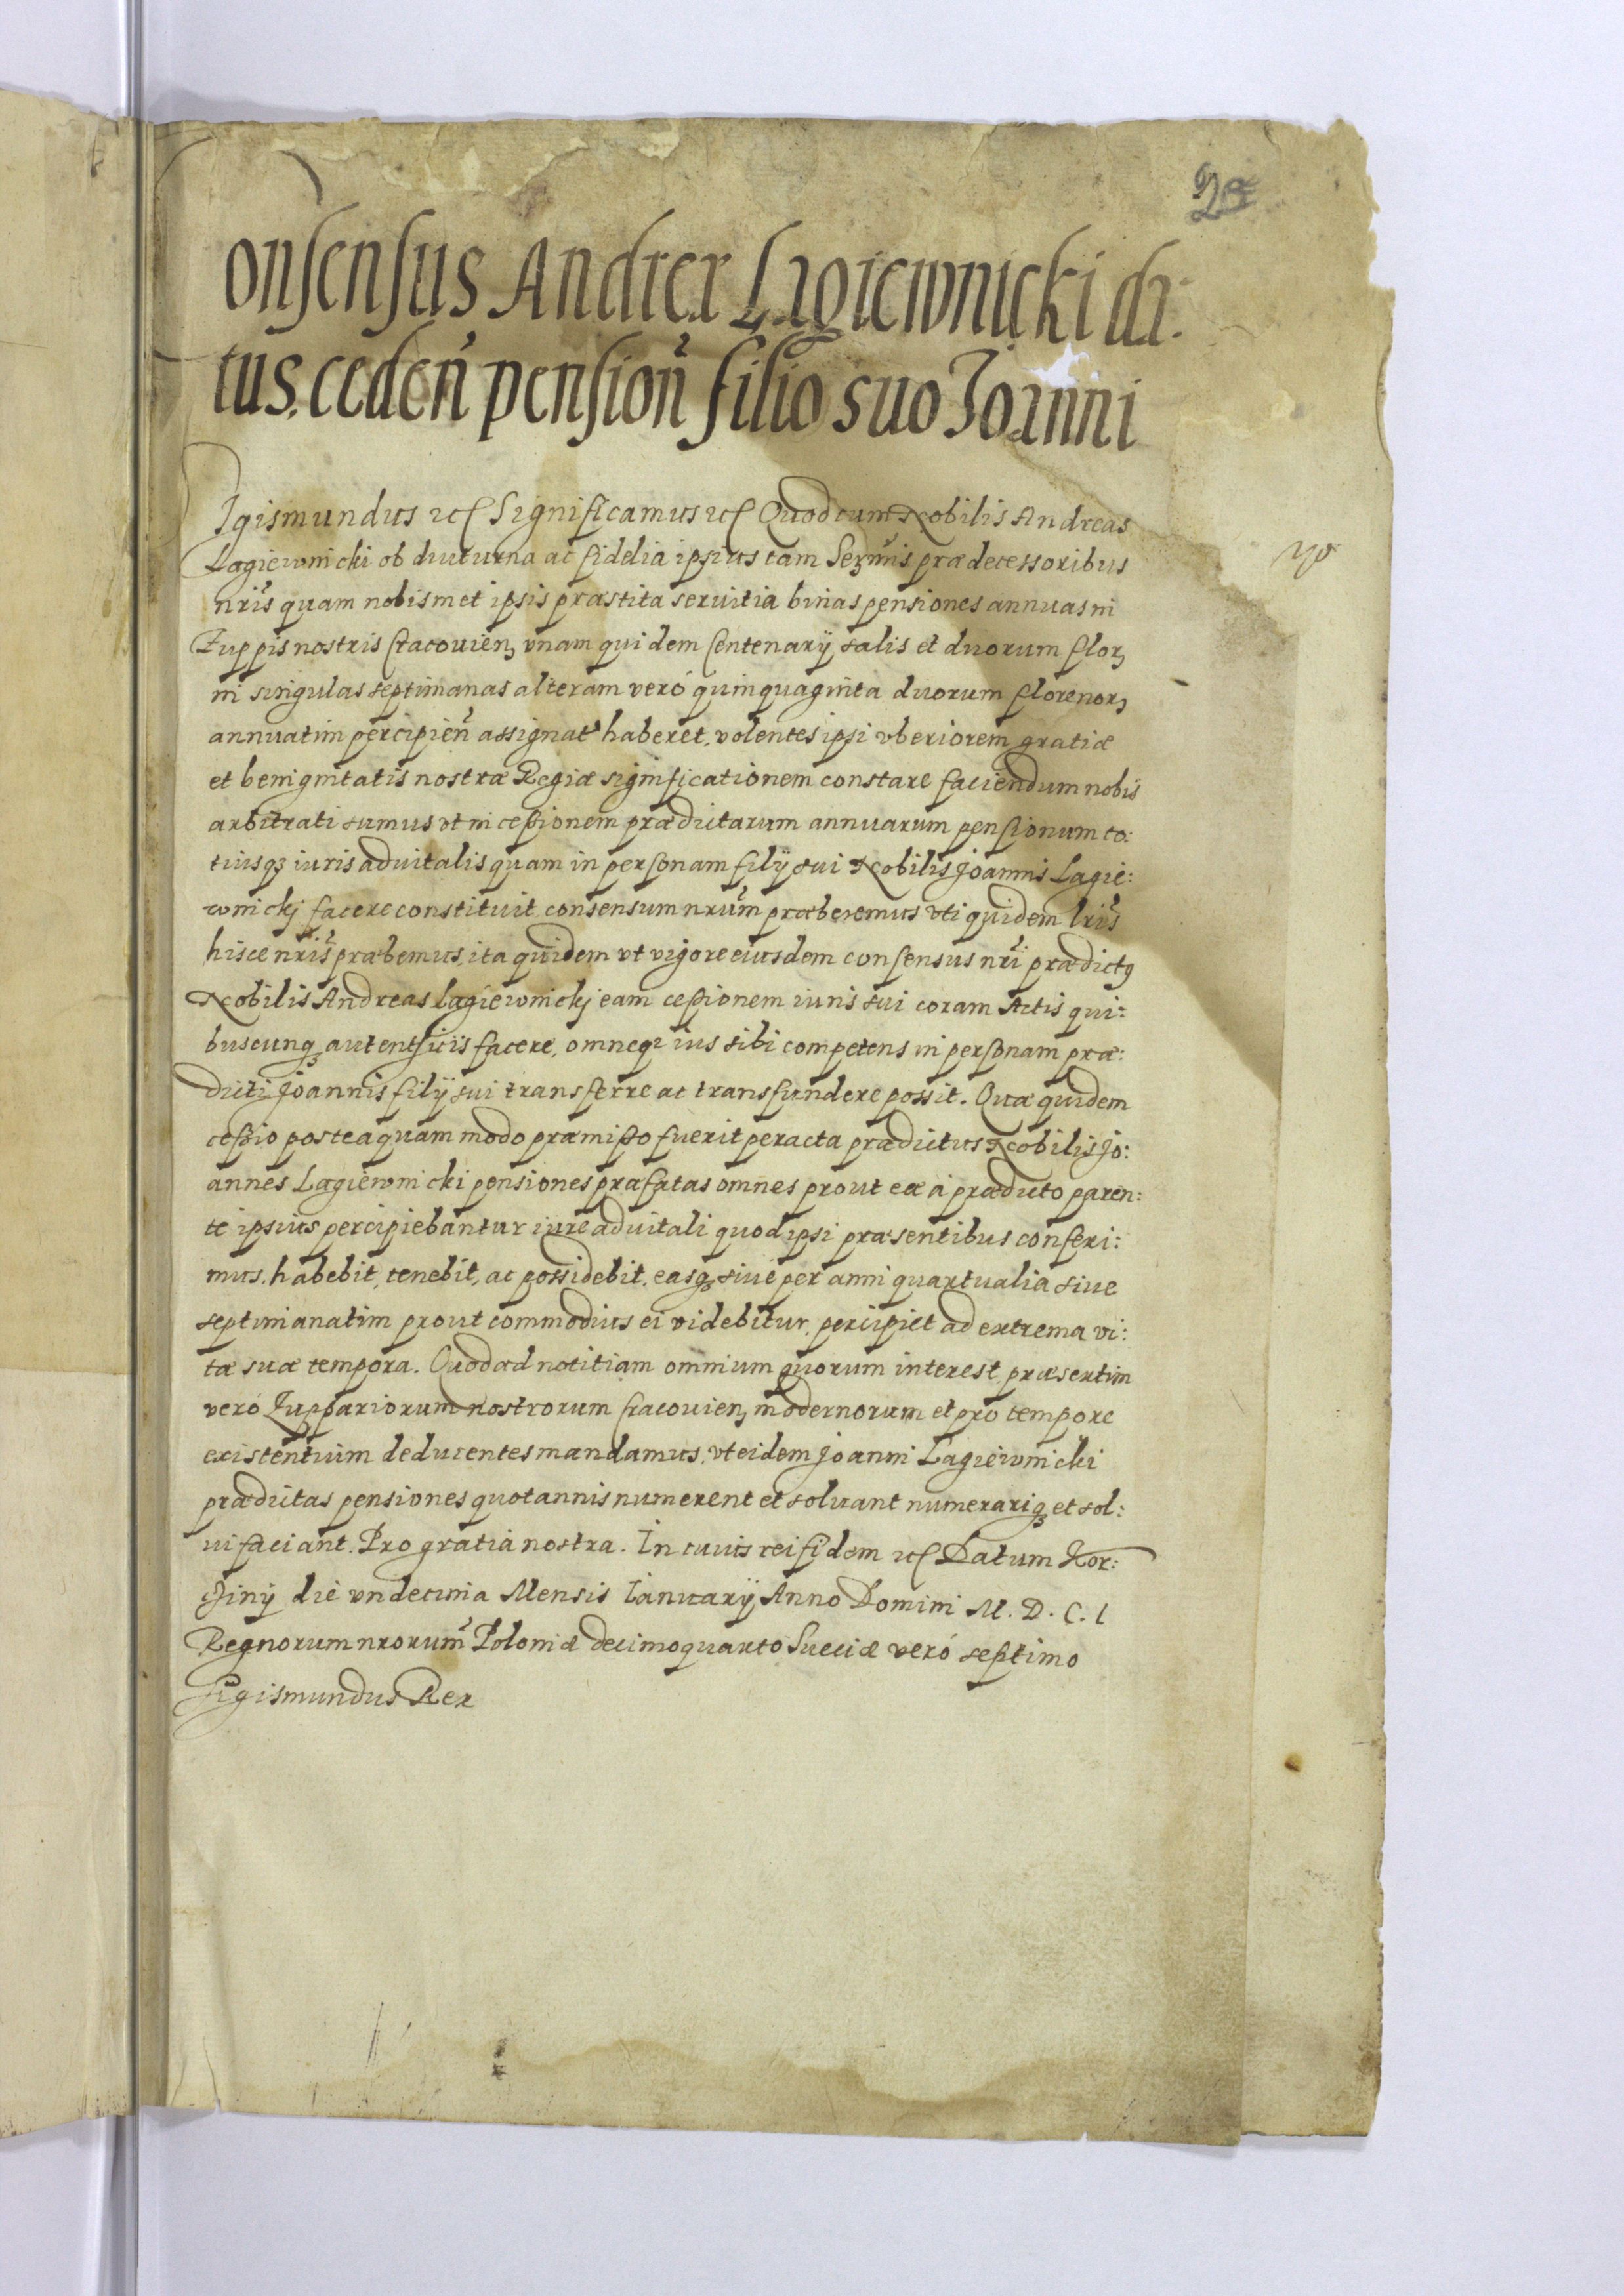 onsensus Andreæ Lagiewnicki da:
tus, ceden̄ pension̄ filio suo Joanni
Igismundus etc Significamus etc Quod cum Nobilis Andreas
Lagiewnicki ob diuturna ac fidelia ipsius tam Serm̄is prædecessoribus
nr̄is quam nobismet ipsis præstita seruitia binas pensiones annuas in
Zuppis nostris Cracouien, vnam quidem Centenarÿ salis et duorum flor,
in singulas septimanas alteram veró quinquaginta duorum florenor,
annuatim percipien̄ assignat haberet, volentes ipsi vberiorem gratiæ
et benignitatis nostræ Regiæ significationem constare faciendum nobis
arbitrati sumus vt in ceßionem prædictarum annuarum pensionum to:
tiusq; iuris aduitalis quam in personam filÿ sui Nobilis Joannis Lagie:
wnickj facere constituit consensum nrūm præberemus vti quidem lrīs
hisce nrīs præbemus, ita quidem vt vigore eiusdem consensus nrī prædictg
Nobilis Andreas Lagiewnickj eam ceßionem iuris sui coram Actis qui:
buscunq; autenthicis facere, omneq; ius sibi competens in personam præ:
dicti Joannis filÿ sui transferre ac transfundere possit. Quæ quidem
ceßio posteaquam modo præmißo fuerit peracta prædictus Nobilis Jo:
annes Lagiewnicki pensiones præfatas omnes prout eæ á prædicto paren:
te ipsius percipiebantur iure aduitali quod ipsi præsentibus conferi:
mus, habebit, tenebit, ac possidebit, easq; siue per anni quartualia siue
septimanatim prout commodius ei videbitur, percipiet ad extrema vi:
tæ suæ tempora. Quod ad notitiam omnium quorum interest, præsertim
veró Zuppariorum nostrorum Cracouien, modernorum et pro tempore
existentium deducentes mandamus, vt eidem Joanni Lagiewnicki
prædictas pensiones quotannis numerent et soluant numerariq; et sol:
ui faciant. Pro gratia nostra. In cuius rei fidem etc Datum Kor:
die vndecima Mensis Ianuarÿ Anno Domini M. D. C. I
Regnorum nrorūm Poloniæ decimoquarto Sueciæ veró septimo
Sigismundus Rex